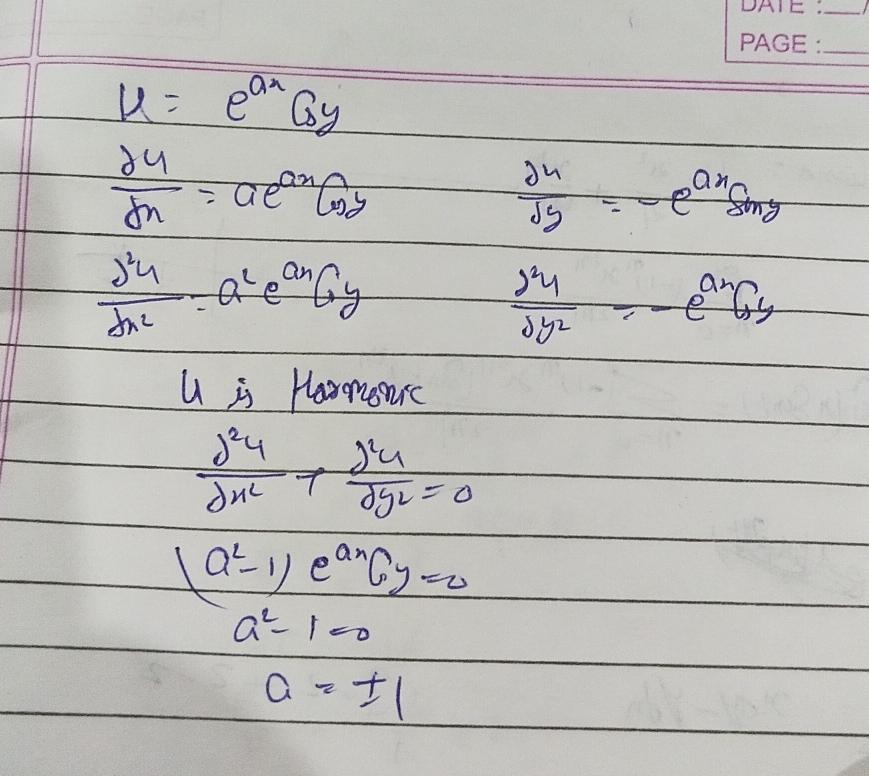 DATE :
PAGE :
u = e^{ax} Cos y
∂u/∂x = a e^{ax} Cos y    ∂u/∂y = - e^{ax} Sin y
∂²u/∂x² = a² e^{ax} Cos y    ∂²u/∂y² = - e^{ax} Cos y
u is Harmonic
∂²u/∂x² + ∂²u/∂y² = 0
(a² - 1) e^{ax} Cos y = 0
a² - 1 = 0
a = ±1